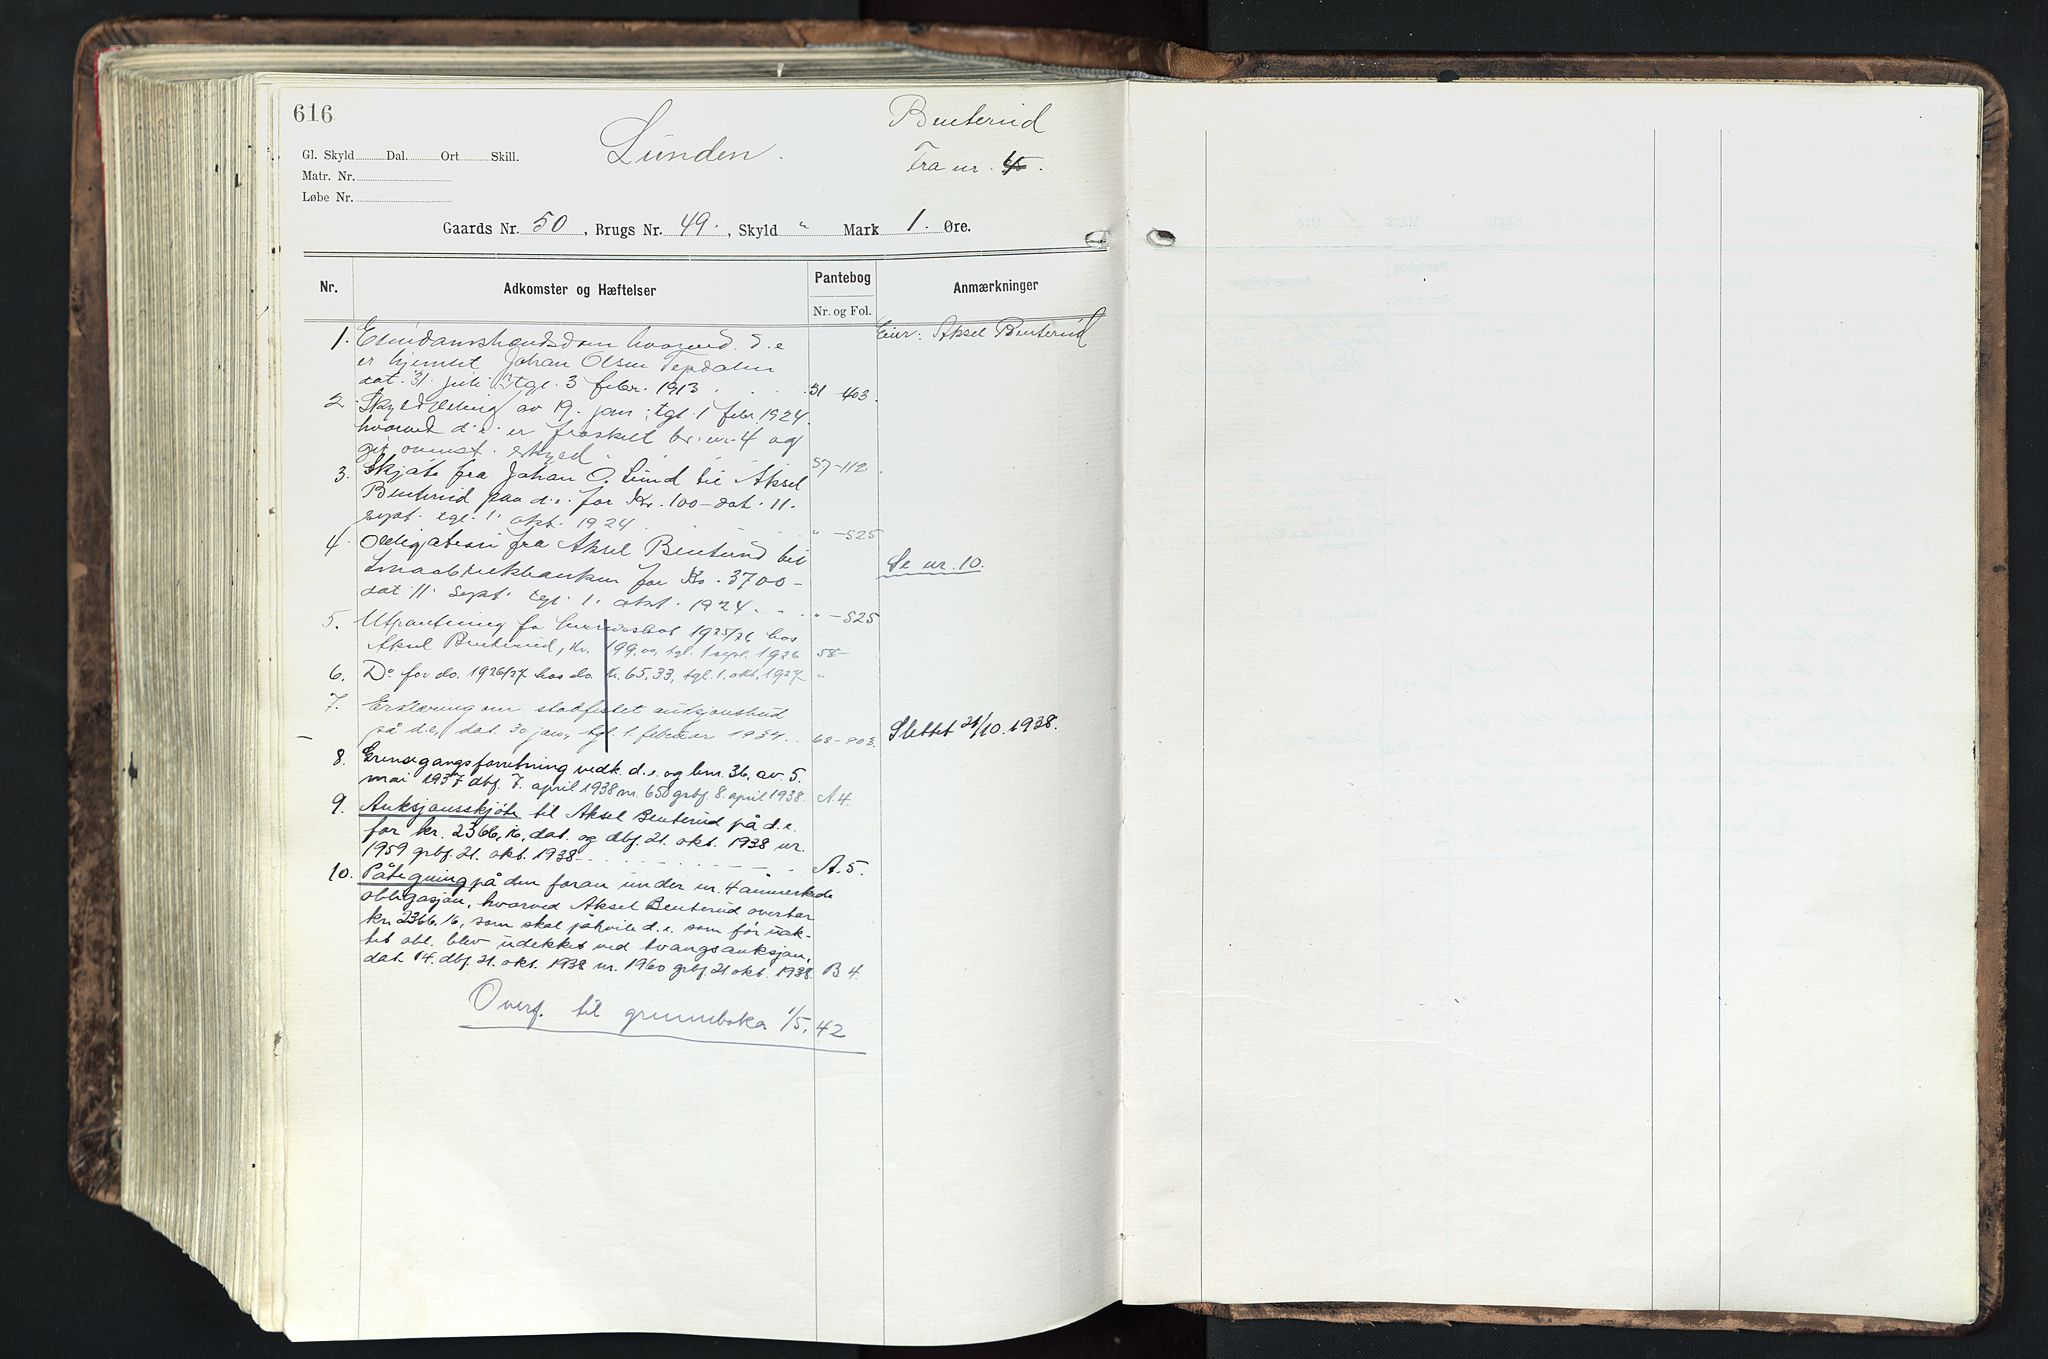 616
Benterud
Lunden.
Fra nr. 4.
Gl. Skyld Dal. Ort Skill.
Matr. Nr.
Løbe Nr.
Gaards Nr. 50, Brugs Nr. 49., Skyld " Mark 1. Øre.
Nr. Adkomster og Hæftelser Pantebog Anmærkninger
Nr. og Fol.
1. Eiendomshævdsdom hvorved d.e. Eier: Aksel Benterud
er hjemlet Johan Olsen Tepdalen
dat. 31 juli tgl. 3 febr. 1913 51-403.
2. Skylddeling av 19. jan. tgl. 1 febr. 1924
hvorved d.e. er fraskilt br. nr. 4 og
git ovenst. skyld. 57-112
3. Skjøte fra Johan O. Lund til Aksel
Benterud paa d.e. for Kr. 100- dat. 11.
sept. tgl. 1. okt. 1924 " -525
4. Obligation fra Aksel Benterud til Se nr. 10.
Smaabrukbanken for Kr. 3700-
dat. 11. sept. tgl. 1. okt. 1924 " -525
5. Utpantning fo herredsskat 1925/26 hos
Aksel Benterud, kr. 199.00, tgl. 1 sept. 1926 58-
6. Do for do. 1926/27 hos do. kr. 65,33, tgl. 1. okt. 1927 "
7. Erklæring om stadfestet auksjonsbud
på d.e., dat. 30 jan., tgl. 1 februar 1934 68-903. Slettet 21/10.1938.
8. Grensegangsforretning vedk. d.e. og bnr. 36, av 5.
mai 1937 dbf. 7. april 1938 nr. 650 grbf. 8. april 1938. A.4.
9. Auksjonsskjøte til Aksel Benterud på d.e.
for kr. 2366,16, dat. og dbf. 21. okt. 1938 nr.
1959 grbf. 21. okt. 1938 A.5.
10. Påtegning på den foran under nr. 4 anmerkede
obligasjon, hvorved Aksel Benterud overtar
kr. 2366.16, som skal påhvile d.e. som før uak-
tet obl. blev udekket ved tvangsauksjon,
dat. 14. dbf. 21. okt. 1938 nr. 1960 grbf. 21 okt. 1938. B 4.
Overf. til grunnboka 1/5.42